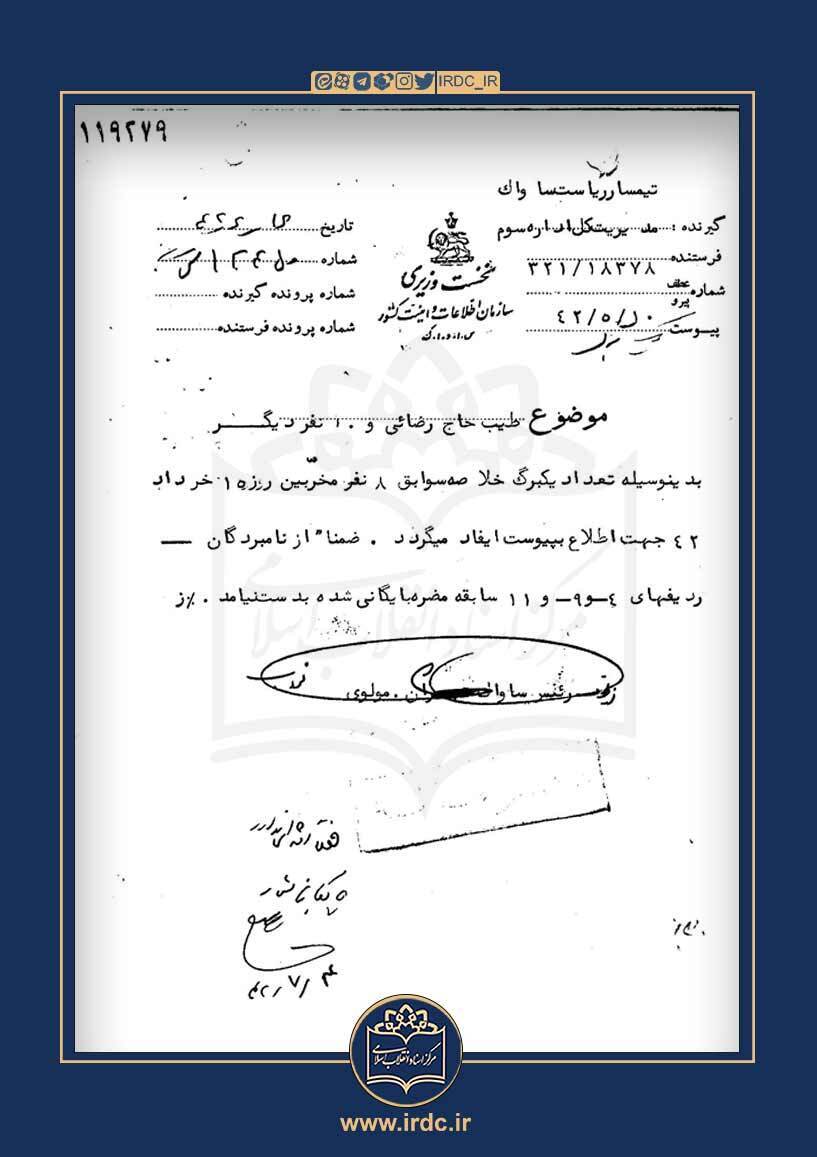 IRDC_IR
۱۱۹۲۷۹
تیمسار ریاست ساواك
گیرنده : مدیریت کل اداره سوم
فرستنده
شماره عطف ۳۲۱/۱۸۳۷۸
پیرو
۴۲/۵/۱۰
پیوست
نخست وزیری
سازمان اطلاعات و امنیت کشور
س.ا.و.ا.ک
تاریخ
شماره
شماره پرونده گیرنده
شماره پرونده فرستنده
موضوع طیب حاج رضائی و ۱۰ نفر دیگر
بدینوسیله تعداد یکبرگ خلاصه سوابق ۸ نفر مخرّبین روز ۱۵ خرداد
۴۲ جهت اطلاع بپیوست ایفاد میگردد . ضمنا" از نامبردگان —
ردیفهای ۴-و۹- و ۱۱ سابقه مضره بایگانی شده بدست نیامد . ٪ز
رئیس ساواك تهران . مولوی
بایگانی شود
۴۲/۷/۴
مرکز اسناد انقلاب اسلامی
مرکز اسناد انقلاب اسلامی
www.irdc.ir